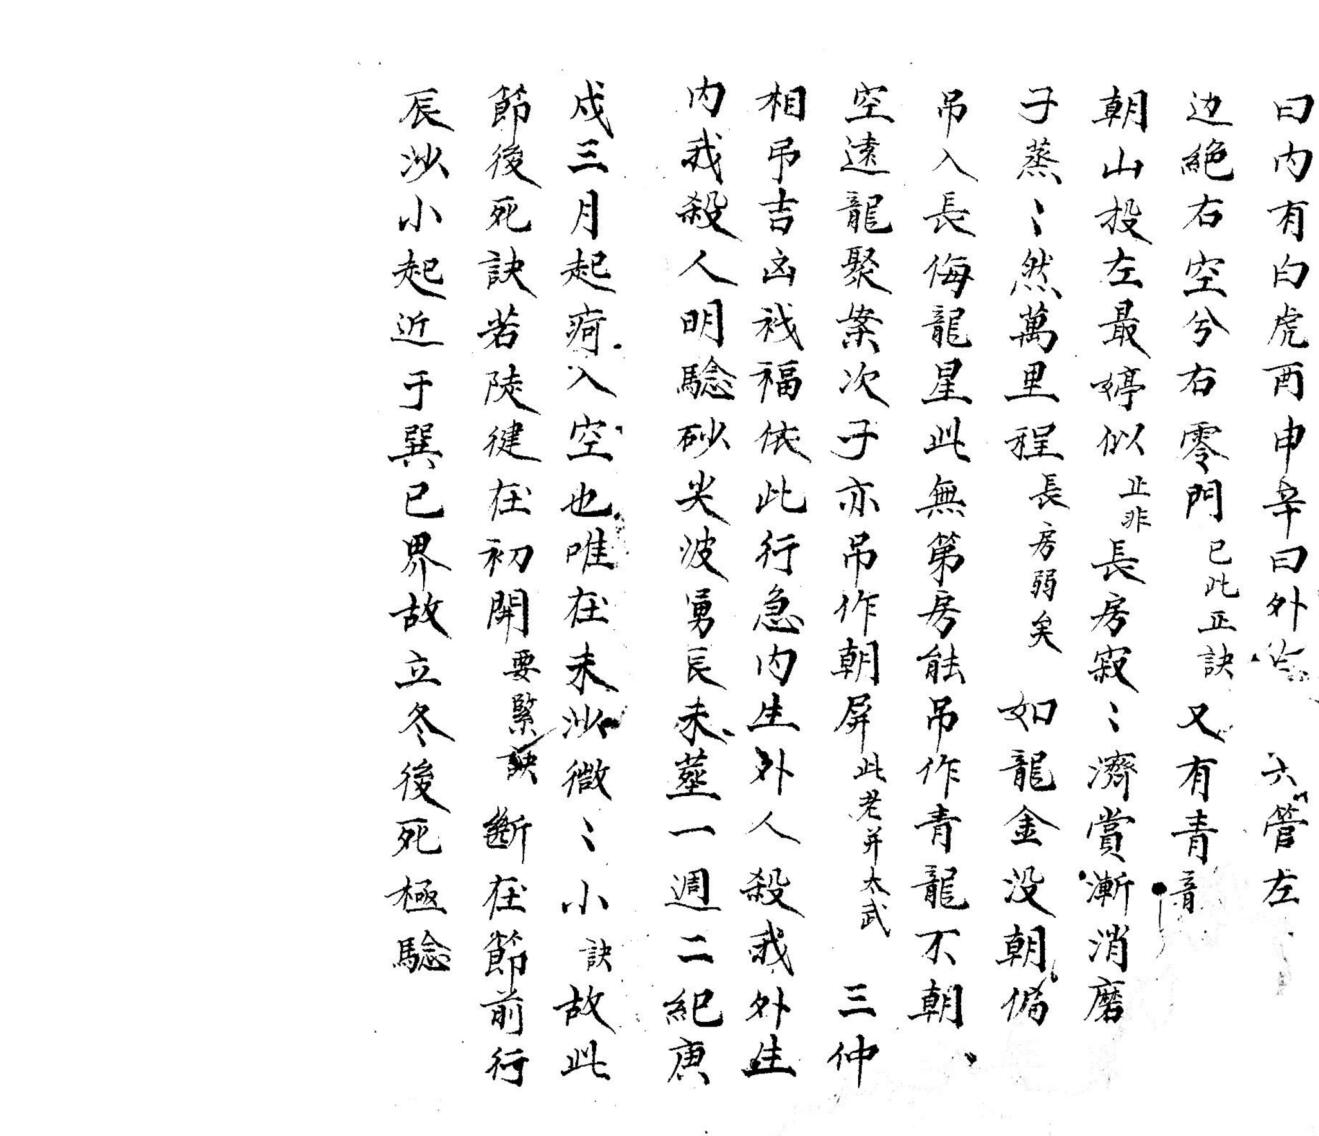 曰内有白虎酉申辛曰外 六管左
边絶右空兮右零門已此正訣又有青音
朝山投左最婷似正非長房寂〻濟賞漸消磨
子蒸〻然萬里程長房弱矣如龍金没朝偹
吊入長侮龍星此無第房能吊作青龍不朝
空遠龍聚案次子亦吊作朝屏此老并太武三仲
相吊吉凶禍福依此行急内生外人殺我外生
内我殺人明驗砂尖波勇長未塟一週二紀庚
戍三月起疴入空也唯在未沙微〻小訣故此
節後死訣若陡徤在初開要緊訣斷在節前行
辰沙小起近于巽巳界故立冬後死極驗